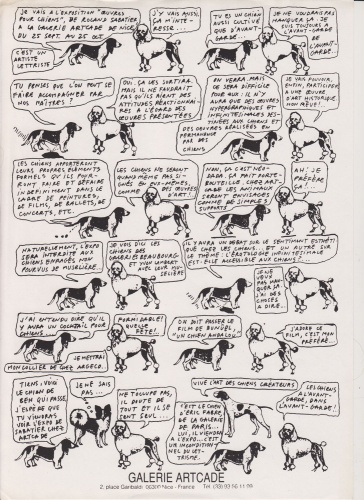 JE VAIS À L'EXPOSITION "ŒUVRES
POUR CHIENS", DE ROLAND SABATIER
À LA GALERIE ARTCADE DE NICE
DU 25 SEPT. AU 25 OCT.
C'EST UN
ARTISTE
LETTRISTE
J'Y VAIS AUSSI,
ÇA M'INTÉ-
RESSE...
TU ES UN CHIEN
AUSSI CULTIVÉ
QUE D'AVANT-
GARDE...
JE NE VOUDRAIS PAS
MANQUER ÇA. JE
SUIS TOUJOURS À
L'AVANT-GARDE
DE
L'AVANT-
GARDE.
TU PENSES QUE L'ON PEUT SE
FAIRE ACCOMPAGNER PAR
NOS MAÎTRES ?
OUI. ÇA LES SORTIRA.
MAIS IL NE FAUDRAIT
PAS QU'ILS AIENT DES
ATTITUDES RÉACTIONNAI-
RES À L'ÉGARD DES
ŒUVRES PRÉSENTÉES
ON VERRA. MAIS CE
SERA DIFFICILE
POUR EUX : IL N'Y
AURA QUE DES ŒUVRES
HYPERGRAPHIQUES ET
INFINITÉSIMALES DES-
TINÉES AUX CHIENS ET
DES ŒUVRES RÉALISÉES EN
PERMANENCE
PAR DES
CHIENS
JE VAIS POUVOIR,
ENFIN, PARTICIPER
À UNE ŒUVRE
D'ART HISTORIQUE
MON RÊVE !
LES CHIENS APPORTERONT
LEURS PROPRES ÉLÉMENTS
FORMELS QU'ILS POUR-
RONT FAIRE ET DÉFAIRE
INDÉFINIMENT DANS LE
CADRE DE PEINTURES,
DE FILMS, DE BALLETS, DE
CONCERTS, ETC.
LES CHIENS NE SERONT
QUAND MÊME PAS SI-
GNÉS OU EUX-MÊMES,
COMME DES ŒUVRES
D'ART !
NON, ÇA C'EST NÉO-
DADA, ÇA PUE PORTE-
BOUTEILLE. CHEZ ARTCADE
LES ANIMAUX
SERONT ENVISAGÉS
COMME DE SIMPLES
SUPPORTS
AH ! JE
PRÉFÈRE
ÇA !
NATURELLEMENT, L'EXPO
SERA INTERDITE AUX
CHIENS ENRAGÉS NON
POURVUS DE MUSELIÈRE.
JE VOIS D'ICI LES
CHIENS DES
GALERIES BEAUBOURG
ET YVON LAMBERT
AVEC LEUR MU-
SELIÈRE
IL Y AURA UN DÉBAT SUR LE SENTIMENT ESTHÉTI
QUE CHEZ LES CHIENS... ET UN AUTRE SUR
LE THÈME : L'ÉRATOLOGIE INFINITÉSIMALE
EST-ELLE ACCESSIBLE AUX CHIENS ?...
JE NE
VEUX PAS
MANQUER
ÇA. J'AI
DES CHOSES
À DIRE...
J'AI ENTENDU DIRE QU'IL
Y AURA UN COCKTAIL POUR
CHIENS...
JE METTRAI
MON COLLIER DE CHEZ ARGECO.
FORMIDABLE !
QUELLE
FÊTE !
ON DOIT PASSER LE
FILM DE BUÑUEL,
"UN CHIEN ANDALOU"
J'ADORE CE
FILM, C'EST MON
PRÉFÉRÉ...
TIENS, VOICI
LE CHIEN DE
BEN QUI
PASSE,
TU VIENDRAS
VOIR L'EXPO DE
SABATIER CHEZ
ARTCADE
JE NE SAIS
PAS...
NE T'OCCUPE PAS,
IL DOUTE DE
TOUT ET IL SE
SENT SEUL...
C'EST LE CHIEN
D'ERIC FABRE,
DE LA GALERIE
DE PARIS...
LUI, IL VIENDRA
À L'EXPO... C'EST
UN INCONDITION
NEL DU LET-
TRISME.
VIVE L'ART DES CHIENS CRÉATEURS !
LES CHIENS
À L'AVANT-
GARDE,
DANS
L'AVANT-GARDE !
GALERIE ARTCADE
2, place Garibaldi 06300 Nice - France Tél. (93)